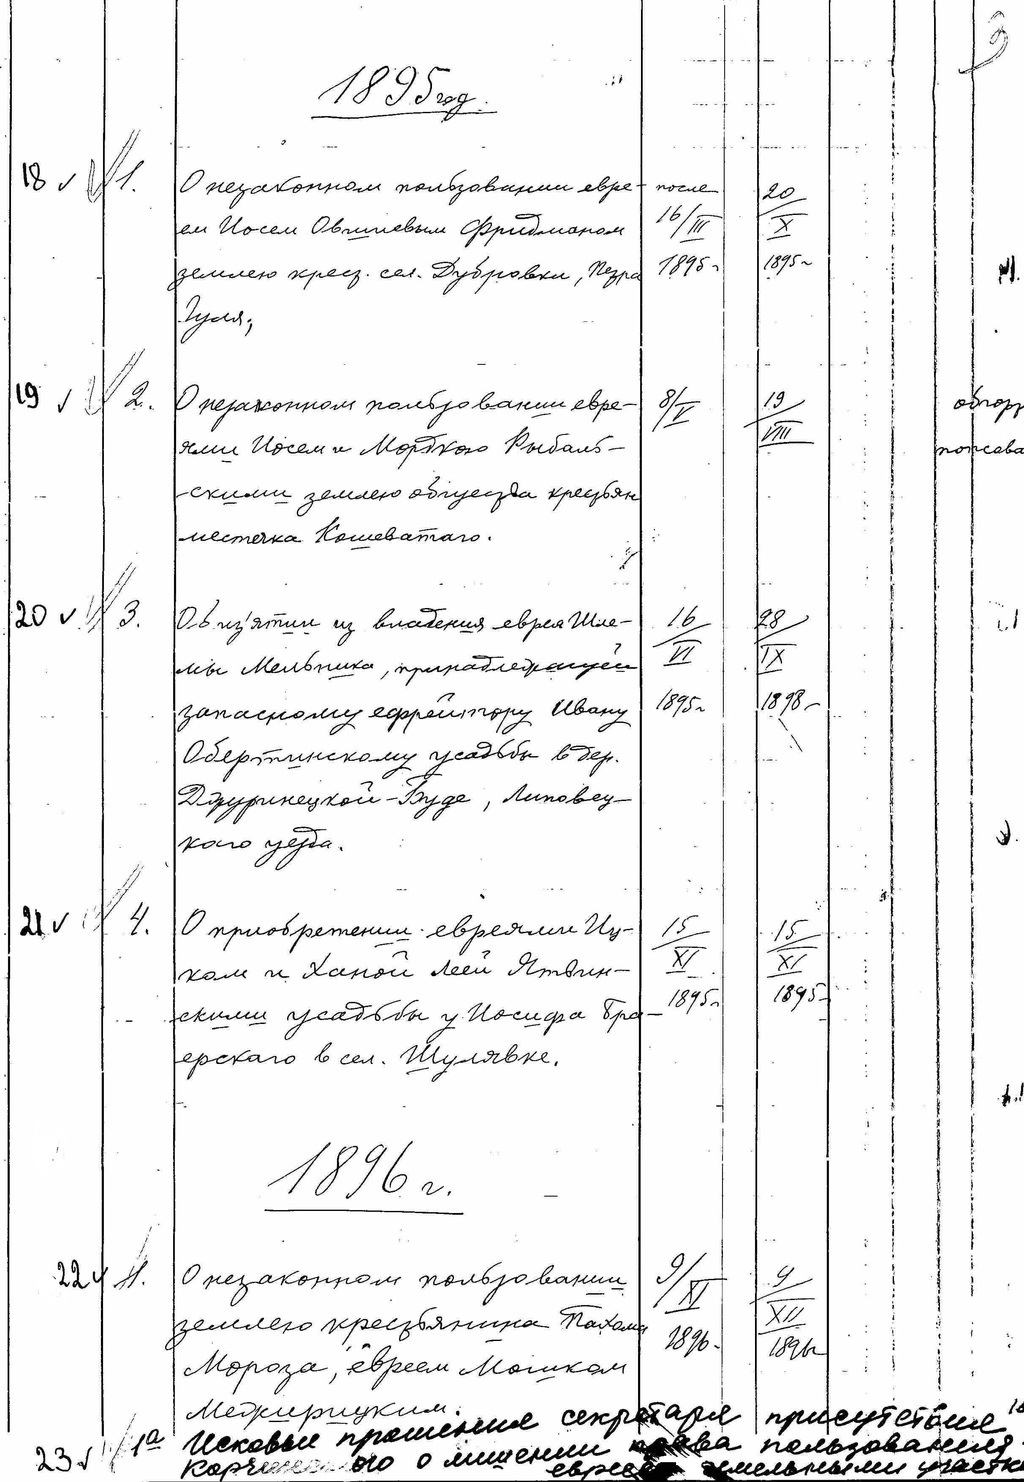 1895 год.
18 1. О незаконном пользовании евре- после 20
ем Иосем Овшиевым Фридманом 16/III X
землею крест. сел. Дубровки, Петра 1895 г 1895 г
Гуля;
19 2. О незаконном пользовании евре- 8/V 19
ями Иосем и Мордкою Рыбаль- VIII
скими землею общества крестьян
местечка Кошеватаго.
20 3. Об из'ятии из владения еврея Шле- 16 28
мы Мельника, принадлежащей VI IX
запасному ефрейтору Ивану 1895 г 1898 г
Обертинскому усадьбы в дер.
Джуринецкой-Буде, Липовец-
кого уезда.
21 4. О приобретении евреями Иц- 15 15
ком и Ханой Леей Ятвин- XI XI
скими усадьбы у Иосифа Бра- 1895 г 1895 г
ерскаго в сел. Шулявке.
1896 г.
22 1. О незаконном пользовании 9/XI 9
землею крестьянина Пахома XII
Мороза, евреем Мошком 1896 1896
Межирицким.
23 1а Исковые прошения секретаря присутствия
о лишении права пользования
евреев земельными